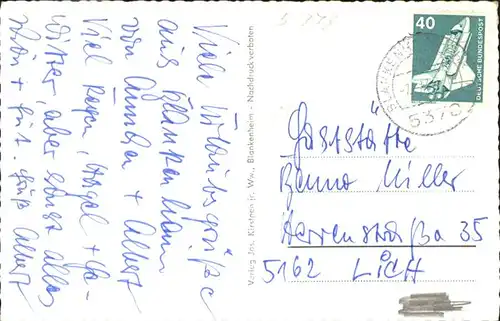 Viele Urlaubsgrüße
aus Blankenheim
von Günther + Albert
Viel Regen, Hagel + Ge-
witter, aber sonst alles
schön + gut. Grüß Albert
Verlag Jos. Kirstgen jr. Ww., Blankenheim - Nachdruck verboten
40
DEUTSCHE BUNDESPOST
5378
Gaststätte
Benno Miller
Herrenstraße 35
5162 LICH